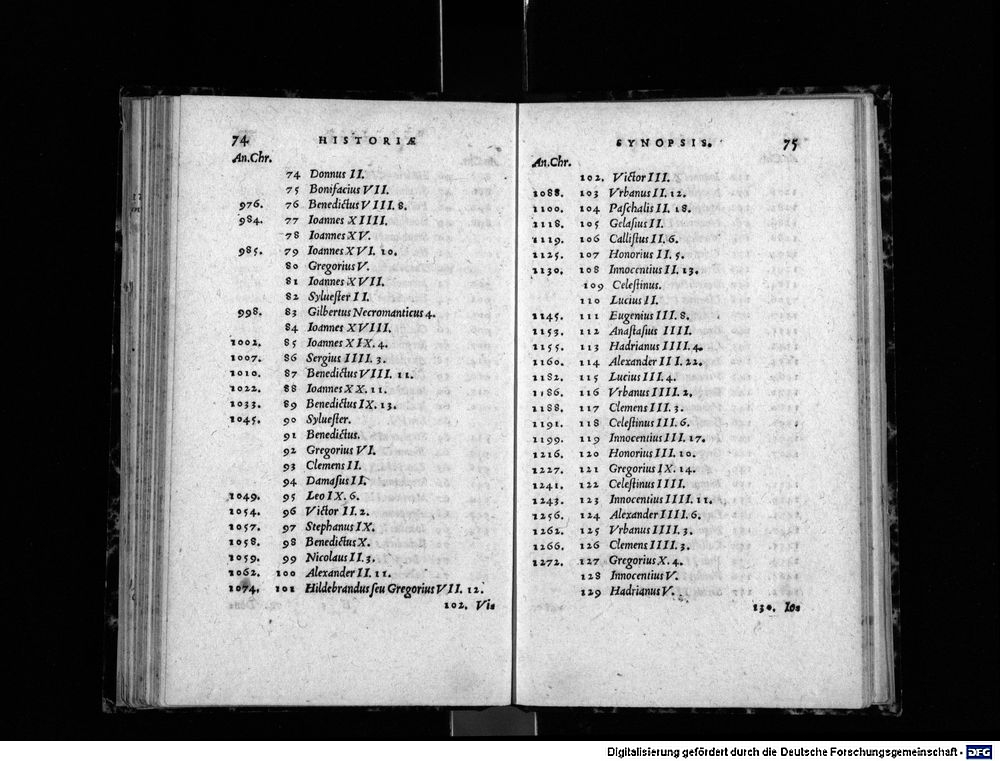 74 HISTORIÆ
An.Chr.
74 Donnus II.
75 Bonifacius VII.
976. 76 Benedictus VIII. 8.
984. 77 Ioannes XIIII.
78 Ioannes XV.
985. 79 Ioannes XVI. 10.
80 Gregorius V.
81 Ioannes XVII.
82 Sylueſter II.
998. 83 Gilbertus Necromanticus 4.
84 Ioannes XVIII.
1002. 85 Ioannes XIX. 4.
1007. 86 Sergius IIII. 3.
1010. 87 Benedictus VIII. 11.
1022. 88 Ioannes XX. 11.
1033. 89 Benedictus IX. 13.
1045. 90 Sylueſter.
91 Benedictus.
92 Gregorius VI.
93 Clemens II.
94 Damaſus II.
1049. 95 Leo IX. 6.
1054. 96 Victor II. 2.
1057. 97 Stephanus IX.
1058. 98 Benedictus X.
1059. 99 Nicolaus II. 3.
1062. 100 Alexander II. 11.
1074. 101 Hildebrandus ſeu Gregorius VII. 12.
102. Vi-
SYNOPSIS. 75
An.Chr.
102. Victor III.
1088. 103 Vrbanus II. 12.
1100. 104 Paſchalis II. 18.
1118. 105 Gelaſius II.
1119. 106 Calliſtus II. 6.
1125. 107 Honorius II. 5.
1130. 108 Innocentius II. 13.
109 Celeſtinus.
110 Lucius II.
1145. 111 Eugenius III. 8.
1153. 112 Anaſtaſius IIII.
1155. 113 Hadrianus IIII. 4.
1160. 114 Alexander III. 22.
1182. 115 Lucius III. 4.
1186. 116 Vrbanus IIII. 2.
1188. 117 Clemens III. 3.
1191. 118 Celeſtinus III. 6.
1199. 119 Innocentius III. 17.
1216. 120 Honorius III. 10.
1227. 121 Gregorius IX. 14.
1241. 122 Celeſtinus IIII.
1243. 123 Innocentius IIII. 11.
1256. 124 Alexander IIII. 6.
1262. 125 Vrbanus IIII. 3.
1266. 126 Clemens IIII. 3.
1272. 127 Gregorius X. 4.
128 Innocentius V.
129 Hadrianus V.
130. Ioa
Digitalisierung gefördert durch die Deutsche Forschungsgemeinschaft - DFG